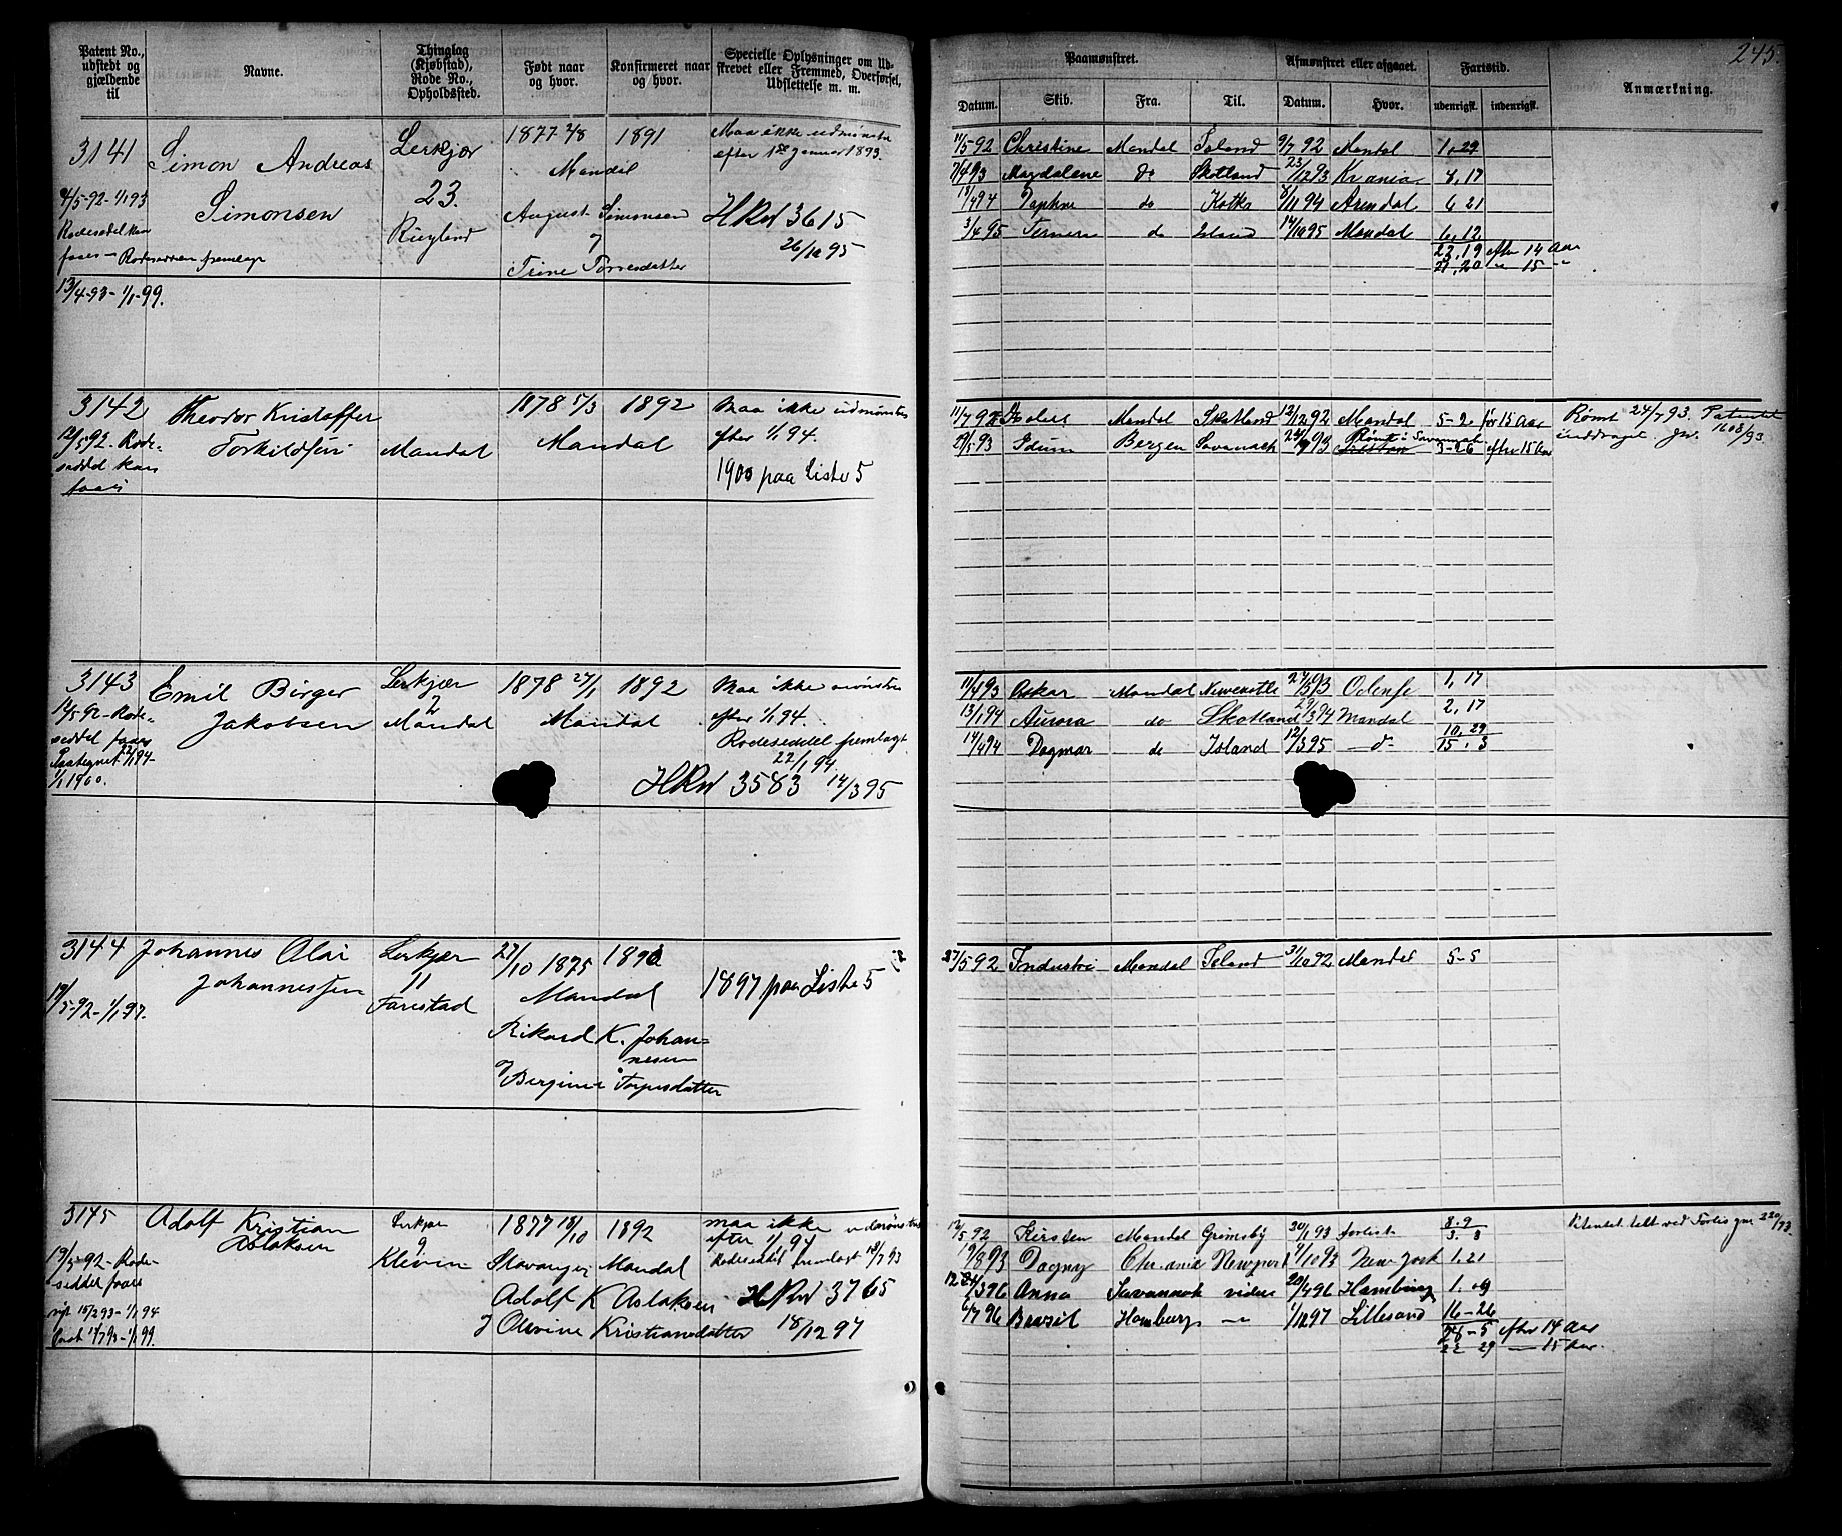 245.
Patent No., udstedt og gjældende til
Navne.
Thinglag (Kjøbstad), Rode No., Opholdssted.
Født naar og hvor.
Konfirmeret naar og hvor.
Specielle Oplysninger om Udskrevet eller Fremmed, Overførsel, Udslettelse m. m.
Paamønstret.
Afmønstret eller afgaaet.
Fartstid.
Anmærkning.
Datum. Skib. Fra. Til. Datum. Hvor. udenrigsk. indenrigsk.
3141 Simon Andreas
Simonsen
4/5-92-1/193
Rodeseddel kan
faaes - Rodeseddelen fremlagt
13/4-93-1/1-99.
Lerkjær
23
Ruyland
1877 4/8 1891
Mandal
August Simonsen
Trine Torresdatter
Maa ikke udmønstres
efter 1ste Januar 1893.
HRN 3615
26/10 95
11/5 92 Christine Mandal Island 9/7 92 Mandal 1,29
7/4 93 Magdalene do Skotland 23/12 93 Kr ania 8,17
18/4 94 Daphne do Kotka 8/11 94 Arendal 6 21
3/4 95 do Island 14/10 95 Mandal 6,12
22,19 efter 14 Aar
21,20 " 15 "
3142 Theodor Kristoffer
Torkildsen
12/5 92 - Rode-
seddel kan
faaes
Mandal
1878 5/3 1892
Mandal
Maa ikke udmønstres
efter 1/1 94.
1900 paa Liste 5
11/7 92 Mandal Skotland 12/12 92 Mandal 5-2 før 15 Aar
29/5 93 Idun Bergen Savannah 24/7 93 Rømt i Savannah 3-26 efter 15 Aar
Rømt 24/7 93. Patentet
inddraget Jn. 1608/93.
3143 Emil Birger
Jakobsen
14/5-92-Rode-
seddel faaes
Paategnet 22/1 94-
1/1 1900.
Lerkjær
2
Mandal
1878 27/1 1892
Mandal
Maa ikke mønstres
efter 1/1 94.
Rodeseddel fremlagt
22/1 94.
HRN 3583 14/3 95
11/4 93 Oskar Mandal Newcastle Odense 1,17
13/1 94 Aurora do Skotland 29/3 94 Mandal 2,17
14/4 94 Dagmar do Island 12/3 95 - d- 10,29
15,3
3144 Johannes Olai
Johannessen
19/5-92-1/1 97.
Lerkjær
11
Farestad
27/10 1875 1892
Mandal
Rikard K. Johan-
nesen
Bergine Torjusdatter
1897 paa Liste 5
27/5 92 Industri Mandal Island 31/10 92 Mandal 5-5
3145 Adolf Kristian
Aslaksen
19/5-92-Rode-
seddel faaes
nyt 15/2 93-1/1 94
17/7 93-1/1 99.
Lerkjær
9
Kleven
1877 18/10 1892
Stavanger Mandal
Adolf K Aslaksen
Olevine Kristiansdatter
Maa ikke udmønstres
efter 1/1 94
Rodeseddel fremlagt 18/7 93
HRN 3765
18/12 97
12/5 92 Kirsten Mandal Grimsby 20/1 93 forlist 8.9
3.8
19/8 93 Dagny Chr.ania Newport 4/10 93 New York 1.21
Anna Savannah videre 20/4 96 Hamburg 1.09
6/7 96 Brasil Hamburg - 1/12 97 Lillesand 16-26
28-5 efter 14 Aar
22 29 - 15 Aar.
Patentet tabt ved Forlis Jn 220/93.